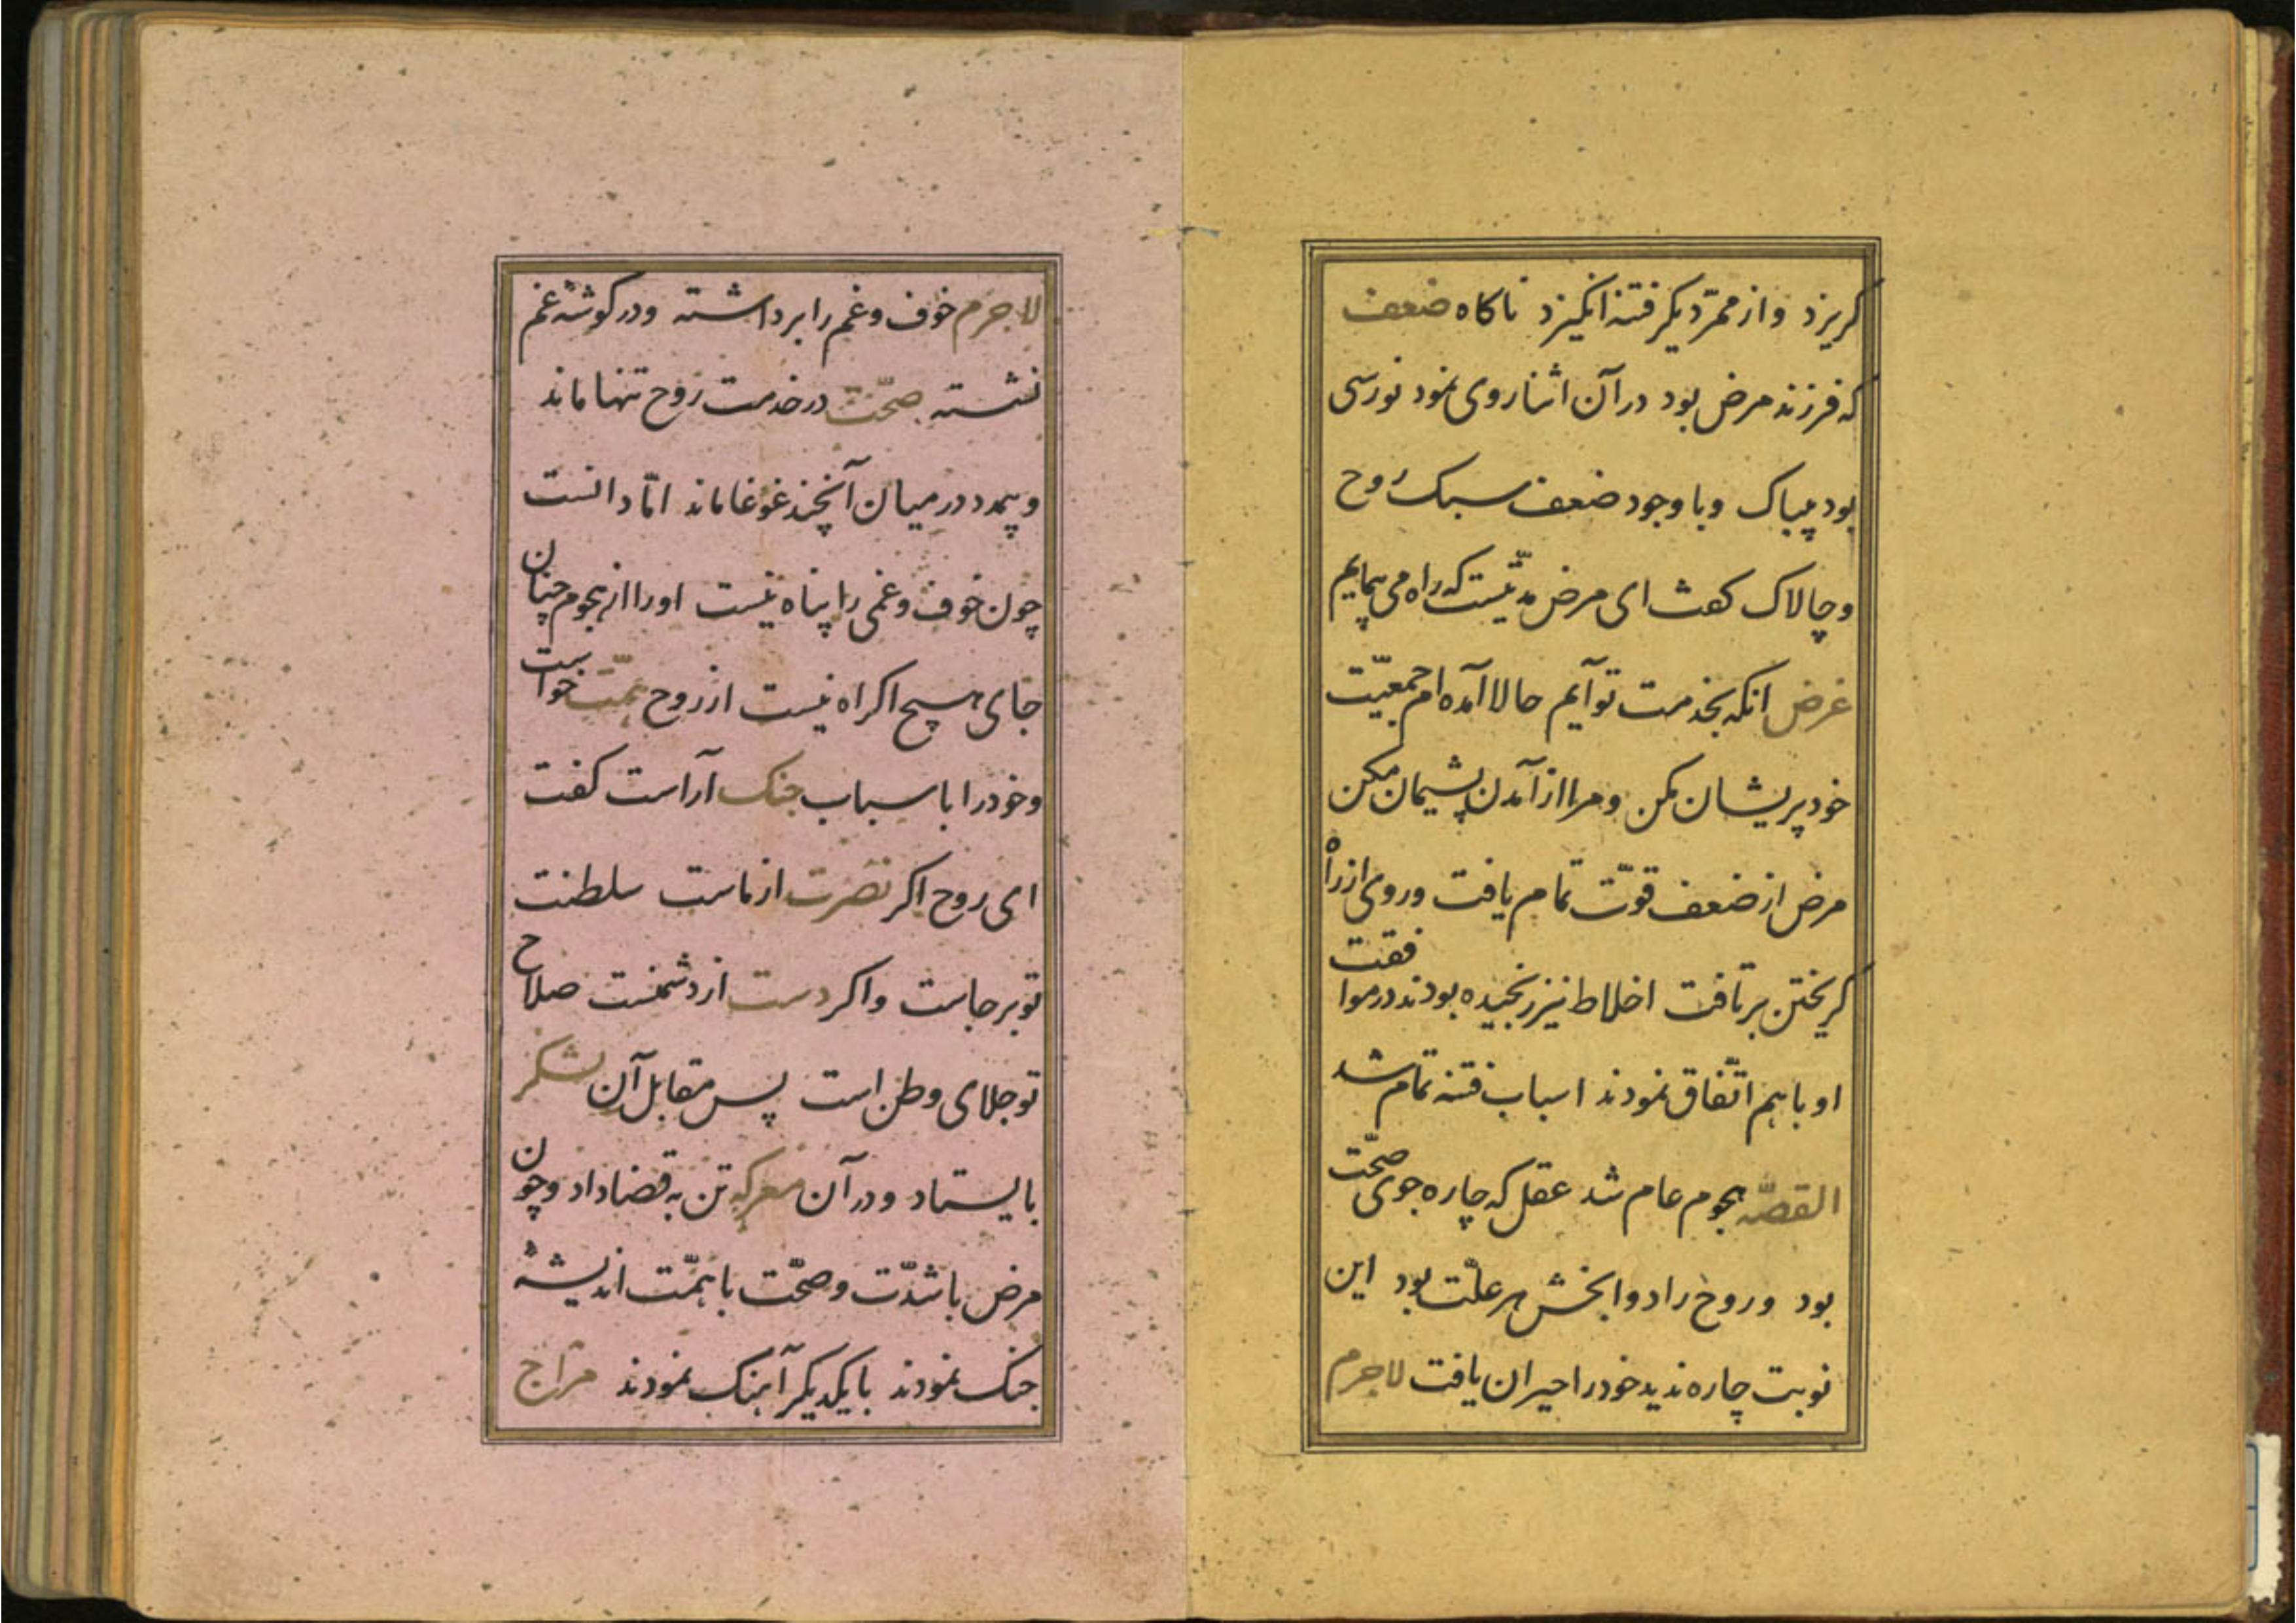 کریزد و از ممرّ دیکر فتنه انکیزد ناکاه ضعف
که فرزند مرض بود در آن اثنا روی نمود نورسی
بود بیباک و با وجود ضعف سبک روح
و چالاک کفت ای مرض مدّتیست که راه می پیمایم
غرض انکه بخدمت تو آیم حالا آمده ام جمعیّت
خود پریشان مکن و مرا از آمدن پشیمان مکن
مرض از ضعف قوّت تمام یافت و روی از راه
کریختن برتافت اخلاط نیز رنجیده بودند در موافقت
او با هم اتّفاق نمودند اسباب فتنه تمام شد
القصّه هجوم عام شد عقل که چاره جوی صحّت
بود و روح را دوابخش هر علّت بود این
نوبت چاره ندید خود را حیران یافت لاجرم
لاجرم خوف و غم را برداشته و در کوشهٔ غم
نشسته صحّت در خدمت روح تنها ماند
و در میان آنچند غوغا ماند امّا دانست
چون خوف و غمی را پناه نیست او را از هجوم چنان
جای هیچ اکراه نیست از روح همّت خواست
و خود را باسباب جنک آراست کفت
ای روح اکر نصرت از ماست سلطنت
تو برجاست و اکر دست از دشمنست صلاح
تو جلای وطن است پس مقابل آن لشکر
بایستاد و در آن معرکه تن به قضا داد و چون
مرض با شدّت و صحّت با همّت اندیشهٔ
جنک نمودند با یکدیکر آهنک نمودند مزاج